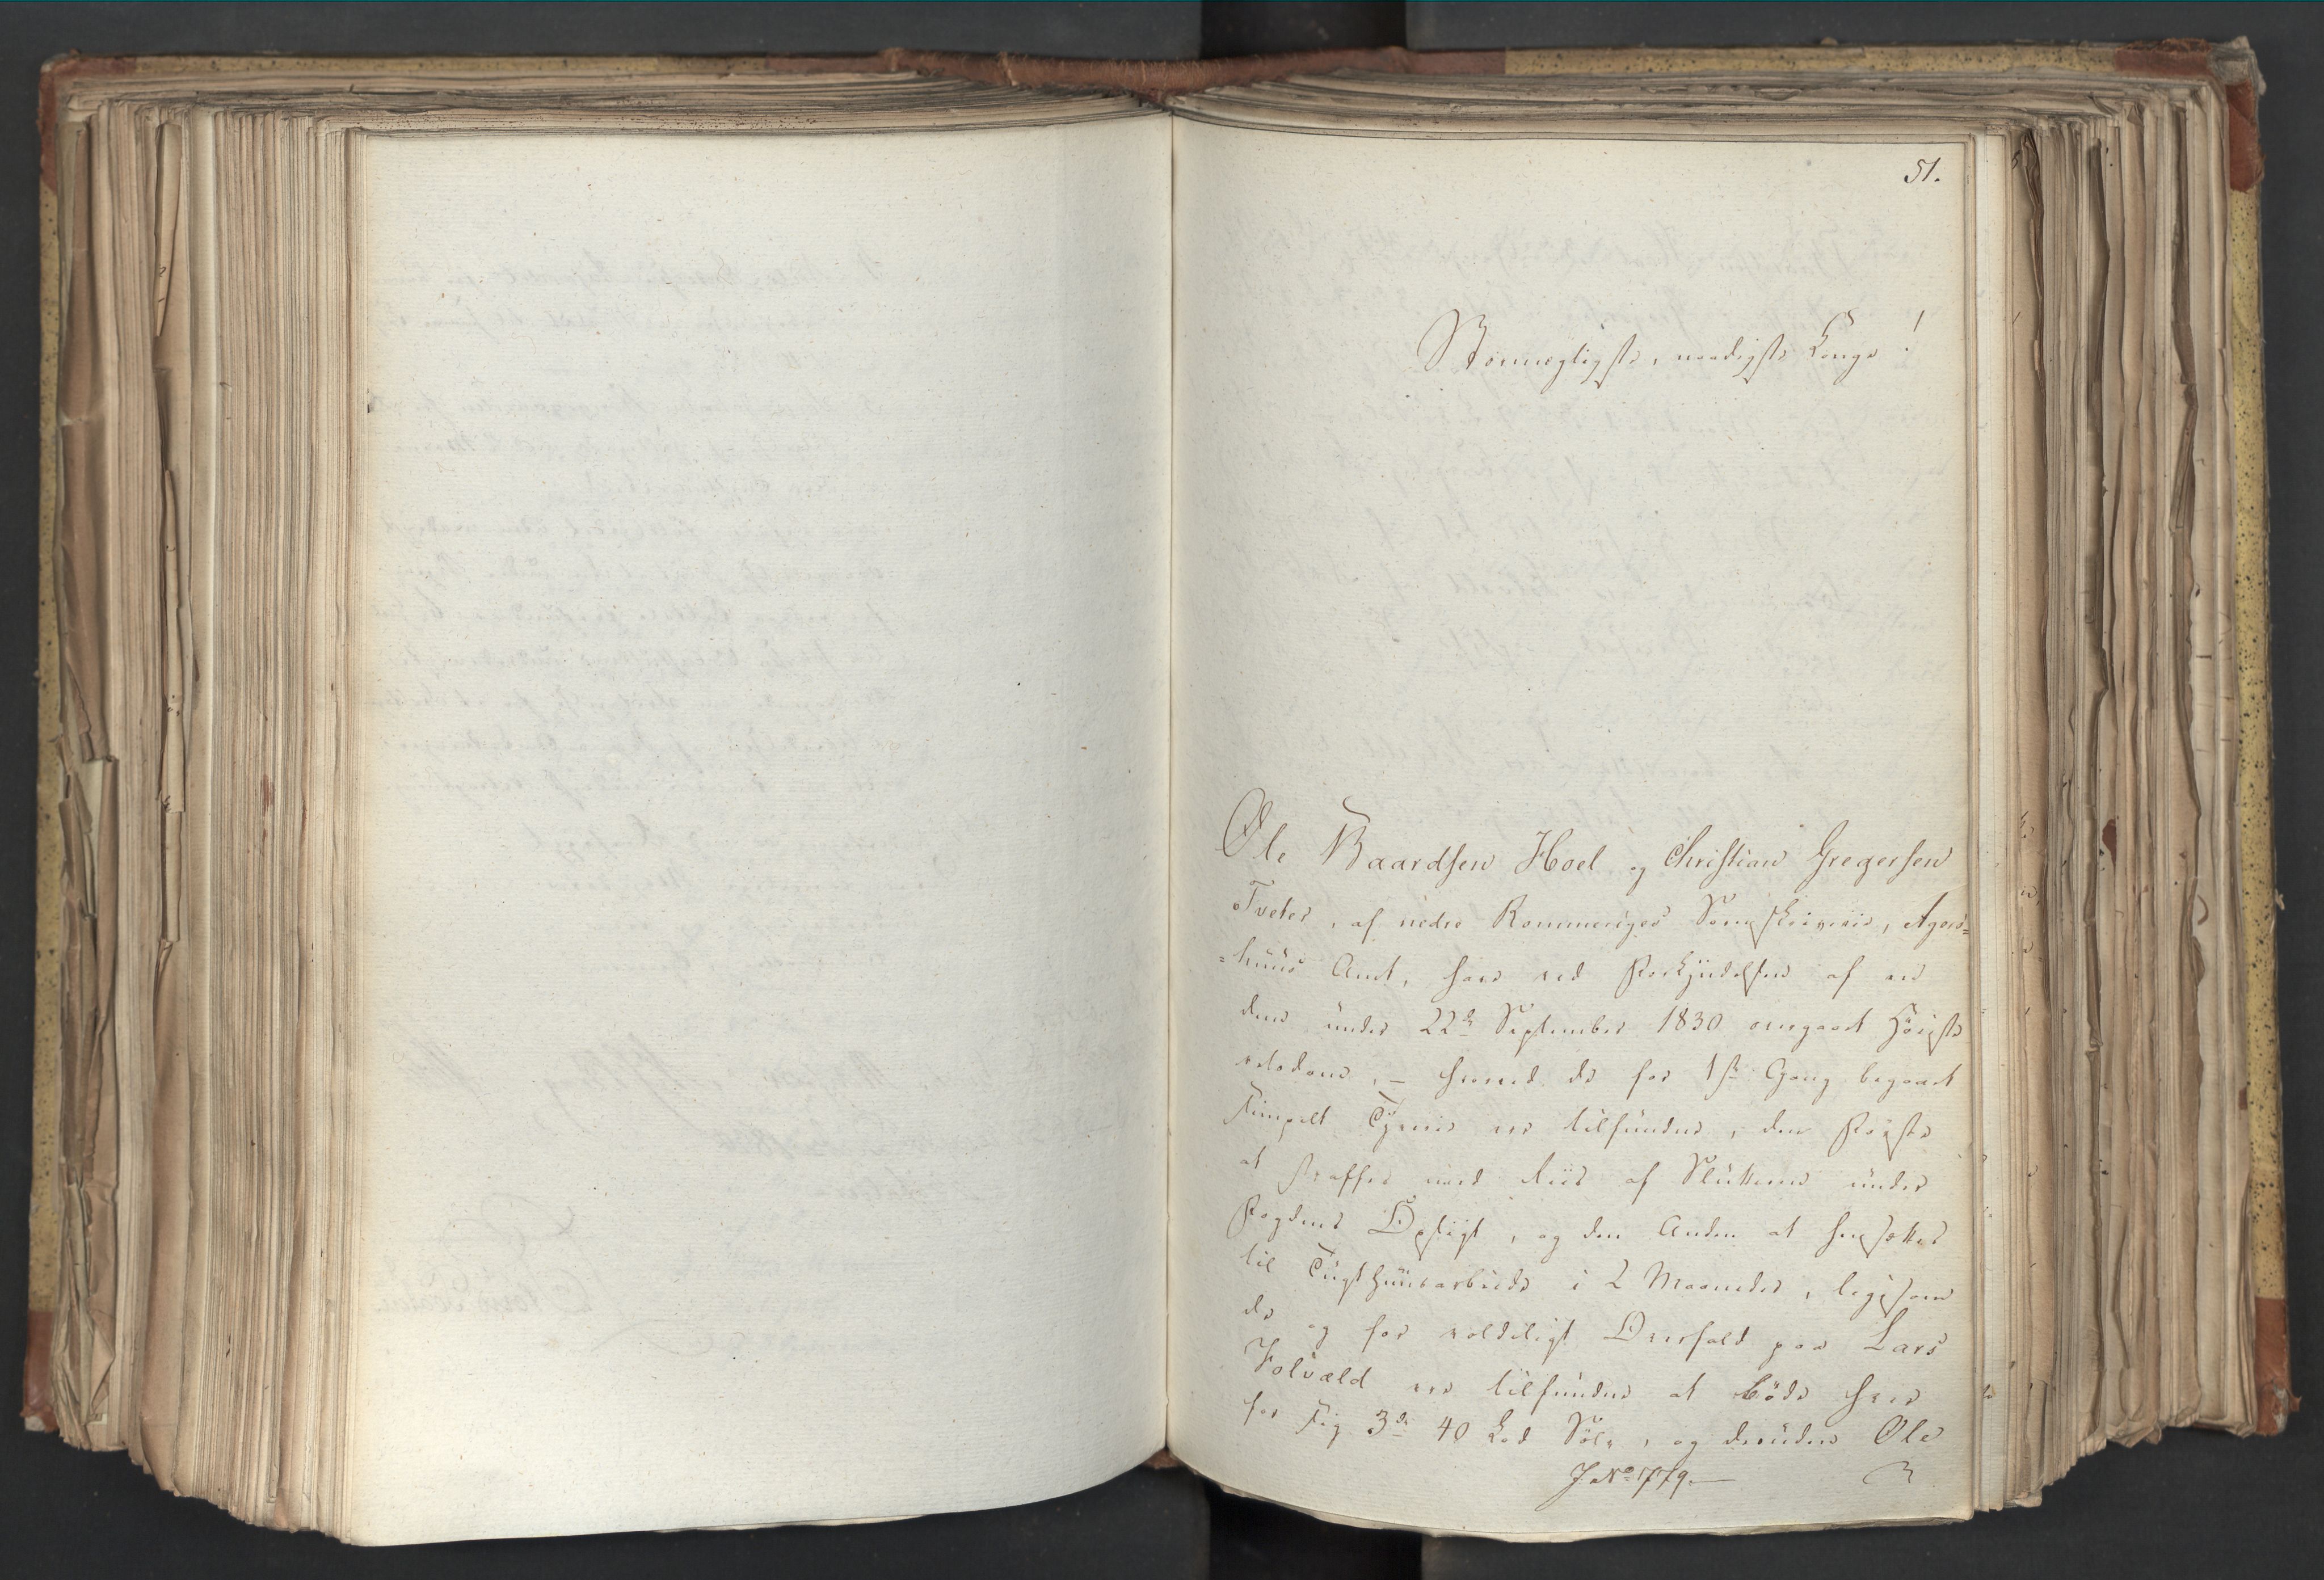 51.
Stormægtigste, naadigste Konge!
Ole Baardsen Hoel og Christian Gregersen
Tveter, af nedre Rommeriges Sorenskriverie, Agers=
=huus Amt, have ved Forkyndelsen af en
dem under 22de September 1830 overgaaet Höieste
retsdom, – hvorved de for 1ste Gang begaaet
simpelt Tyverie ere tilfundne, den Förste
at straffes med Riis af Slutteren under
Fogdens Opsigt, og den Anden at hensættes
til Tugthuusarbeide i 2 Maaneder, ligesom
de og for voldeligt Overfald paa Lars
Holvæld ere tilfundne at böde hver
for sig 3de 40 Lod Sölv, og desuden Ole
J. No. 1779.